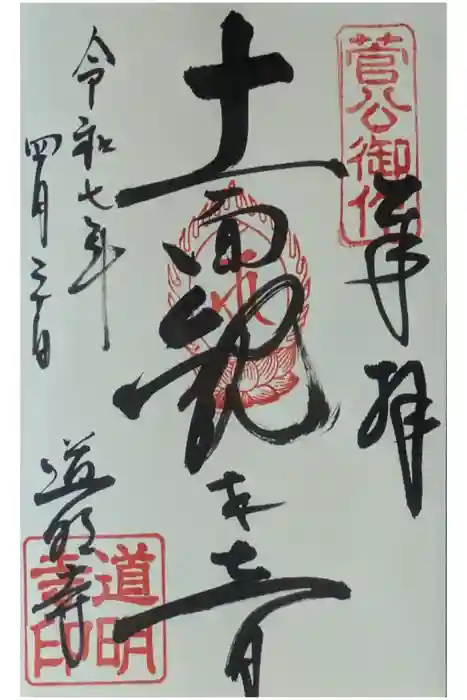 菅公御作
奉拝
十一面観世音
令和七年
四月 日
道明寺
道明寺印